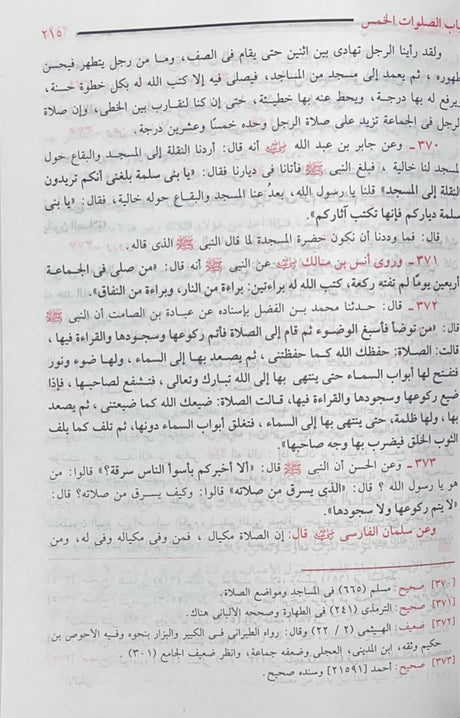 باب الصلوات الخمس ٢١٥
ولقد رأينا الرجل تهادى بين اثنين حتى يقام فى الصف، وما من رجل يتطهر فيحسن
طهوره ، ثم يعمد إلى مسجد من المساجد، فيصلى فيه إلا كتب الله له بكل خطوة حسنة،
ويرفع له بها درجة، ويحط عنه بها خطيئة، حتى إن كنا لنقارب بين الخطى، وإن صلاة
الرجل فى الجماعة تزيد على صلاة الرجل وحده خمسًا وعشرين درجة.
٣٧٠- وعن جابر بن عبد الله رضي الله عنه أنه قال: أردنا النقلة إلى المسجد والبقاع حول
المسجد لنا خالية ، فبلغ النبى ﷺ فأتانا فى ديارنا فقال: «يا بنى سلمة بلغنى أنكم تريدون
النقلة إلى المسجد» قلنا يا رسول الله، بعدُ عنا المسجد والبقاع حوله خالية، فقال: «يا بنى
سلمة دياركم فإنها تكتب آثاركم».
قال: فما وددنا أن نكون حضرة المسجدة لما قال النبى ﷺ الذى قاله.
٣٧١- وروى أنس بن مـالك رضي الله عنه عن النبى ﷺ أنه قال: «من صلى فى الجماعـة
أربعين يومًا لم تفته ركعة، كتب الله له براءتين: براءة من النار، وبراءة من النفاق».
٣٧٢- قال: حـدثنا محمـد بن الفضل بإسناده عن عبـادة بن الصامت أن النبى ﷺ
قال: «من توضأ فأسبغ الوضـوء ثم قام إلى الصلاة فأتم ركوعها وسجـودها والقراءة فيها ،
قالت: الصلاة: حفظك الله كمـا حفظتنى ، ثم يصـعد بهـا إلى السماء ، ولهـا ضـوء ونور
فتفتـح لها أبواب السماء حتى ينتهى بها إلى الله تبارك وتعالى ، فتـشفع لصاحبها ، فإذا
ضيع ركوعها وسجودها والقراءة فيها، قالت الصلاة: ضيعك الله كما ضيعتنى ، ثم يصعد
بها ، ولها ظلمة، حتى ينتهى بها إلى السماء ، فتغلق أبواب السماء دونها، ثم تلف كما يلف
الثوب الخلق فيضرب بها وجه صاحبها».
٣٧٣- وعن الحسن أن النبى ﷺ قال: «ألا أخبركم بأسوأ الناس سرقة؟» قالوا: من
هو يا رسول الله ؟ قال: «الذى يسرق من صلاته» قالوا: وكيف يسرق من صلاته؟ قال:
«لا يتم ركوعها ولا سجودها».
وعن سلمان الفارسى رضي الله عنه قال: إن الصلاة مكيال ، فمن وفى مكياله وفى له، ومن
[٣٧٠] صحيح: مسلم (٦٦٥) فى المساجد ومواضع الصلاة.
[٣٧١] صحيح: الترمذى (٢٤١) فى الطهارة وصححه الألبانى هناك.
[٣٧٢] ضعيف: الهيثمى (٢ / ٢٢) وقال: رواه الطبرانى فى الكبير والبزار بنحوه وفيه الأحوص بن
حكيم وثقه، ابن المدينى، العجلى وضعفه جماعة، وانظر ضعيف الجامع (٣٠١).
[٣٧٣] صحيح: أحمد [٢١٥٩١] وسنده صحيح.